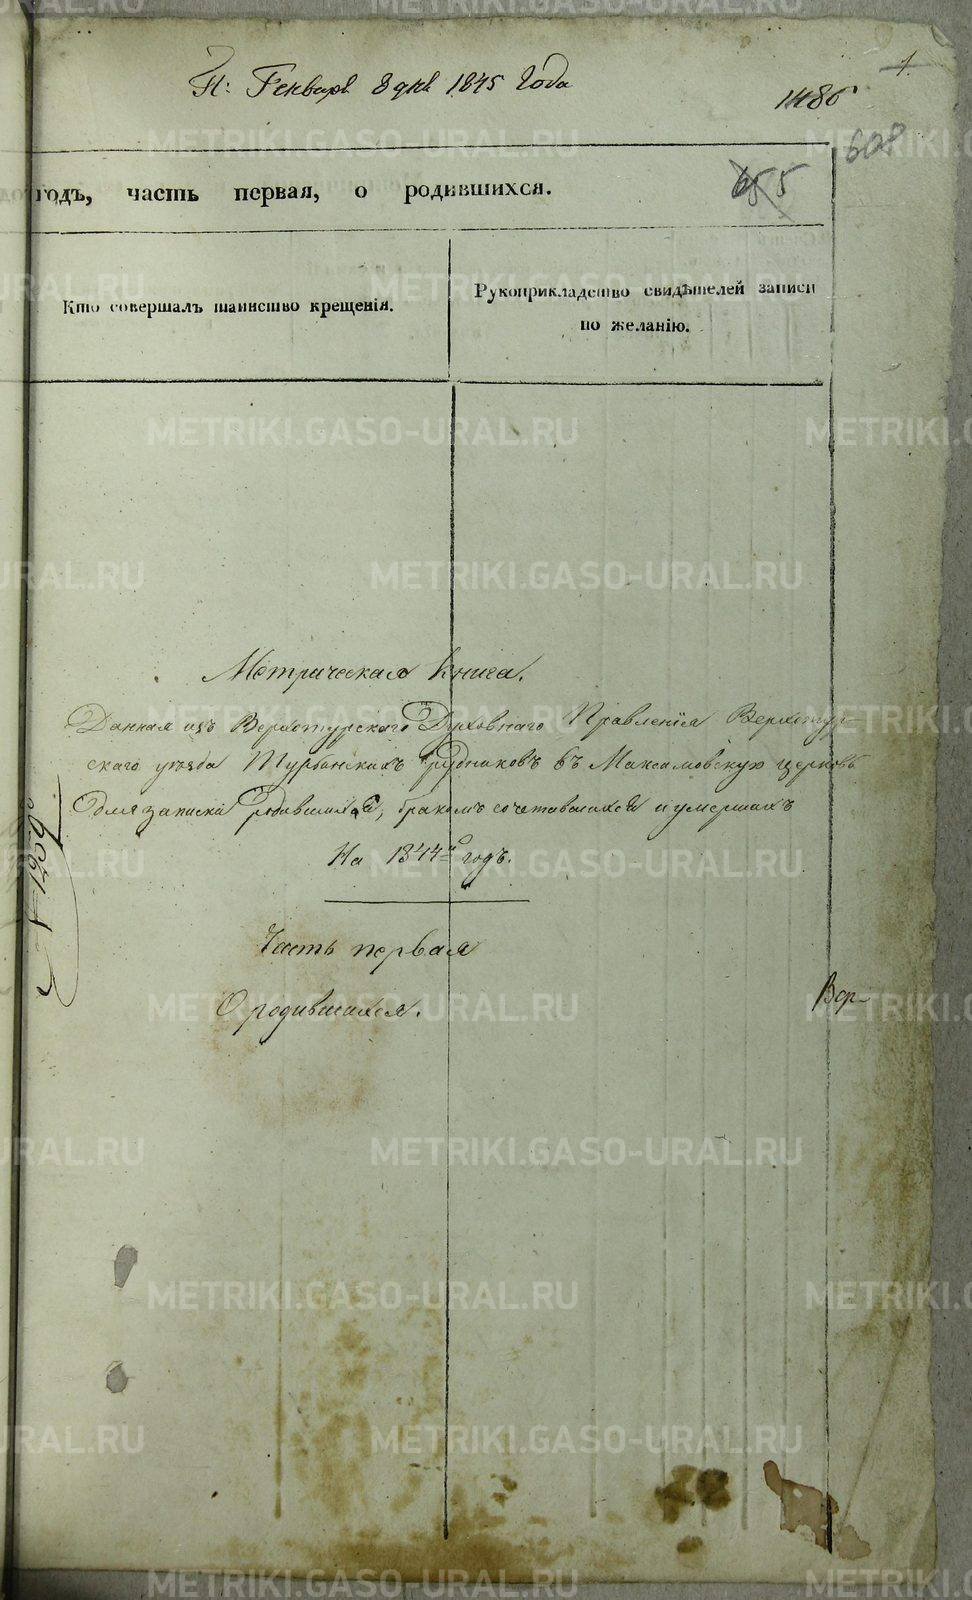 П: Генваря 8 дня 1845 года
1.
1486
608
655
годъ, часть первая, о родившихся.
Кто совершалъ таинство крещенія.
Рукоприкладство свидѣтелей записи
по желанію.
Метрическая Книга.
Данная изъ Верхотурскаго Духовнаго Правленія Верхотур-
скаго уѣзда Турьинскихъ Рудниковъ въ Максимовскую церковь
Для записки родившихся, бракомъ сочетавшихся и умершихъ
На 1844й годъ.
Часть первая
О родившихся.
Вер-
METRIKI.GASO-URAL.RU